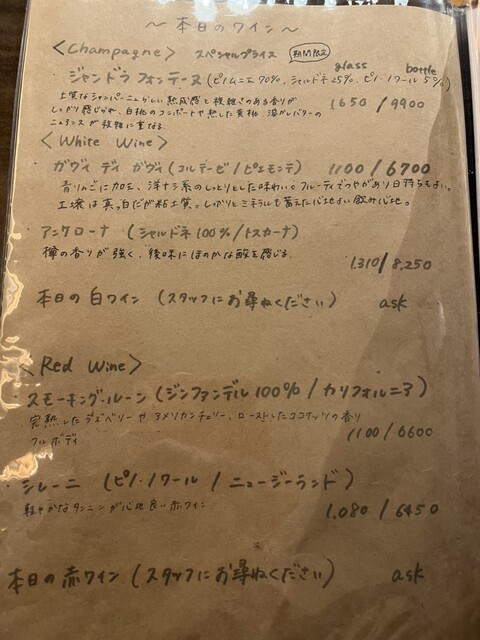 ～本日のワイン～
〈Champagne〉 スペシャルプライス 期間限定
glass bottle
・ジャンドラ フォンテーヌ (ピノムニエ70%, シャルドネ25%, ピノ・ノワール5%)
上質なシャンパーニュらしい熟成感と複雑さのある香りが 1650 / 9900
しっかり感じられ、白桃のコンポートや熟した黄桃、溶かしバターの
ニュアンスが複雑に重なる。
〈White Wine〉
・ガヴィ ディ ガヴィ (コルテーゼ/ピエモンテ) 1100 / 6700
青りんごに加え、洋ナシ系のしっとりとした味わい。フルーティでつやがあり日持ちもよい。
土壌は真っ白だが粘土質。しっかりとミネラルを蓄えた心地よい飲み心地。
アンケローナ (シャルドネ100%/トスカーナ)
樽の香りが強く、後味にほのかな酸を感じる 1.310 / 8.250
本日の白ワイン (スタッフにお尋ねください) ask
〈Red Wine〉
・スモーキングールーン (ジンファンデル100% / カリフォルニア)
完熟したラズベリーやアメリカンチェリー、ローストしたココナッツの香り
フルボディ 1100 / 6600
・シレーニ (ピノ・ノワール / ニュージーランド)
軽やかなタンニンが心地良い赤ワイン 1.080 / 6450
本日の赤ワイン (スタッフにお尋ねください) ask